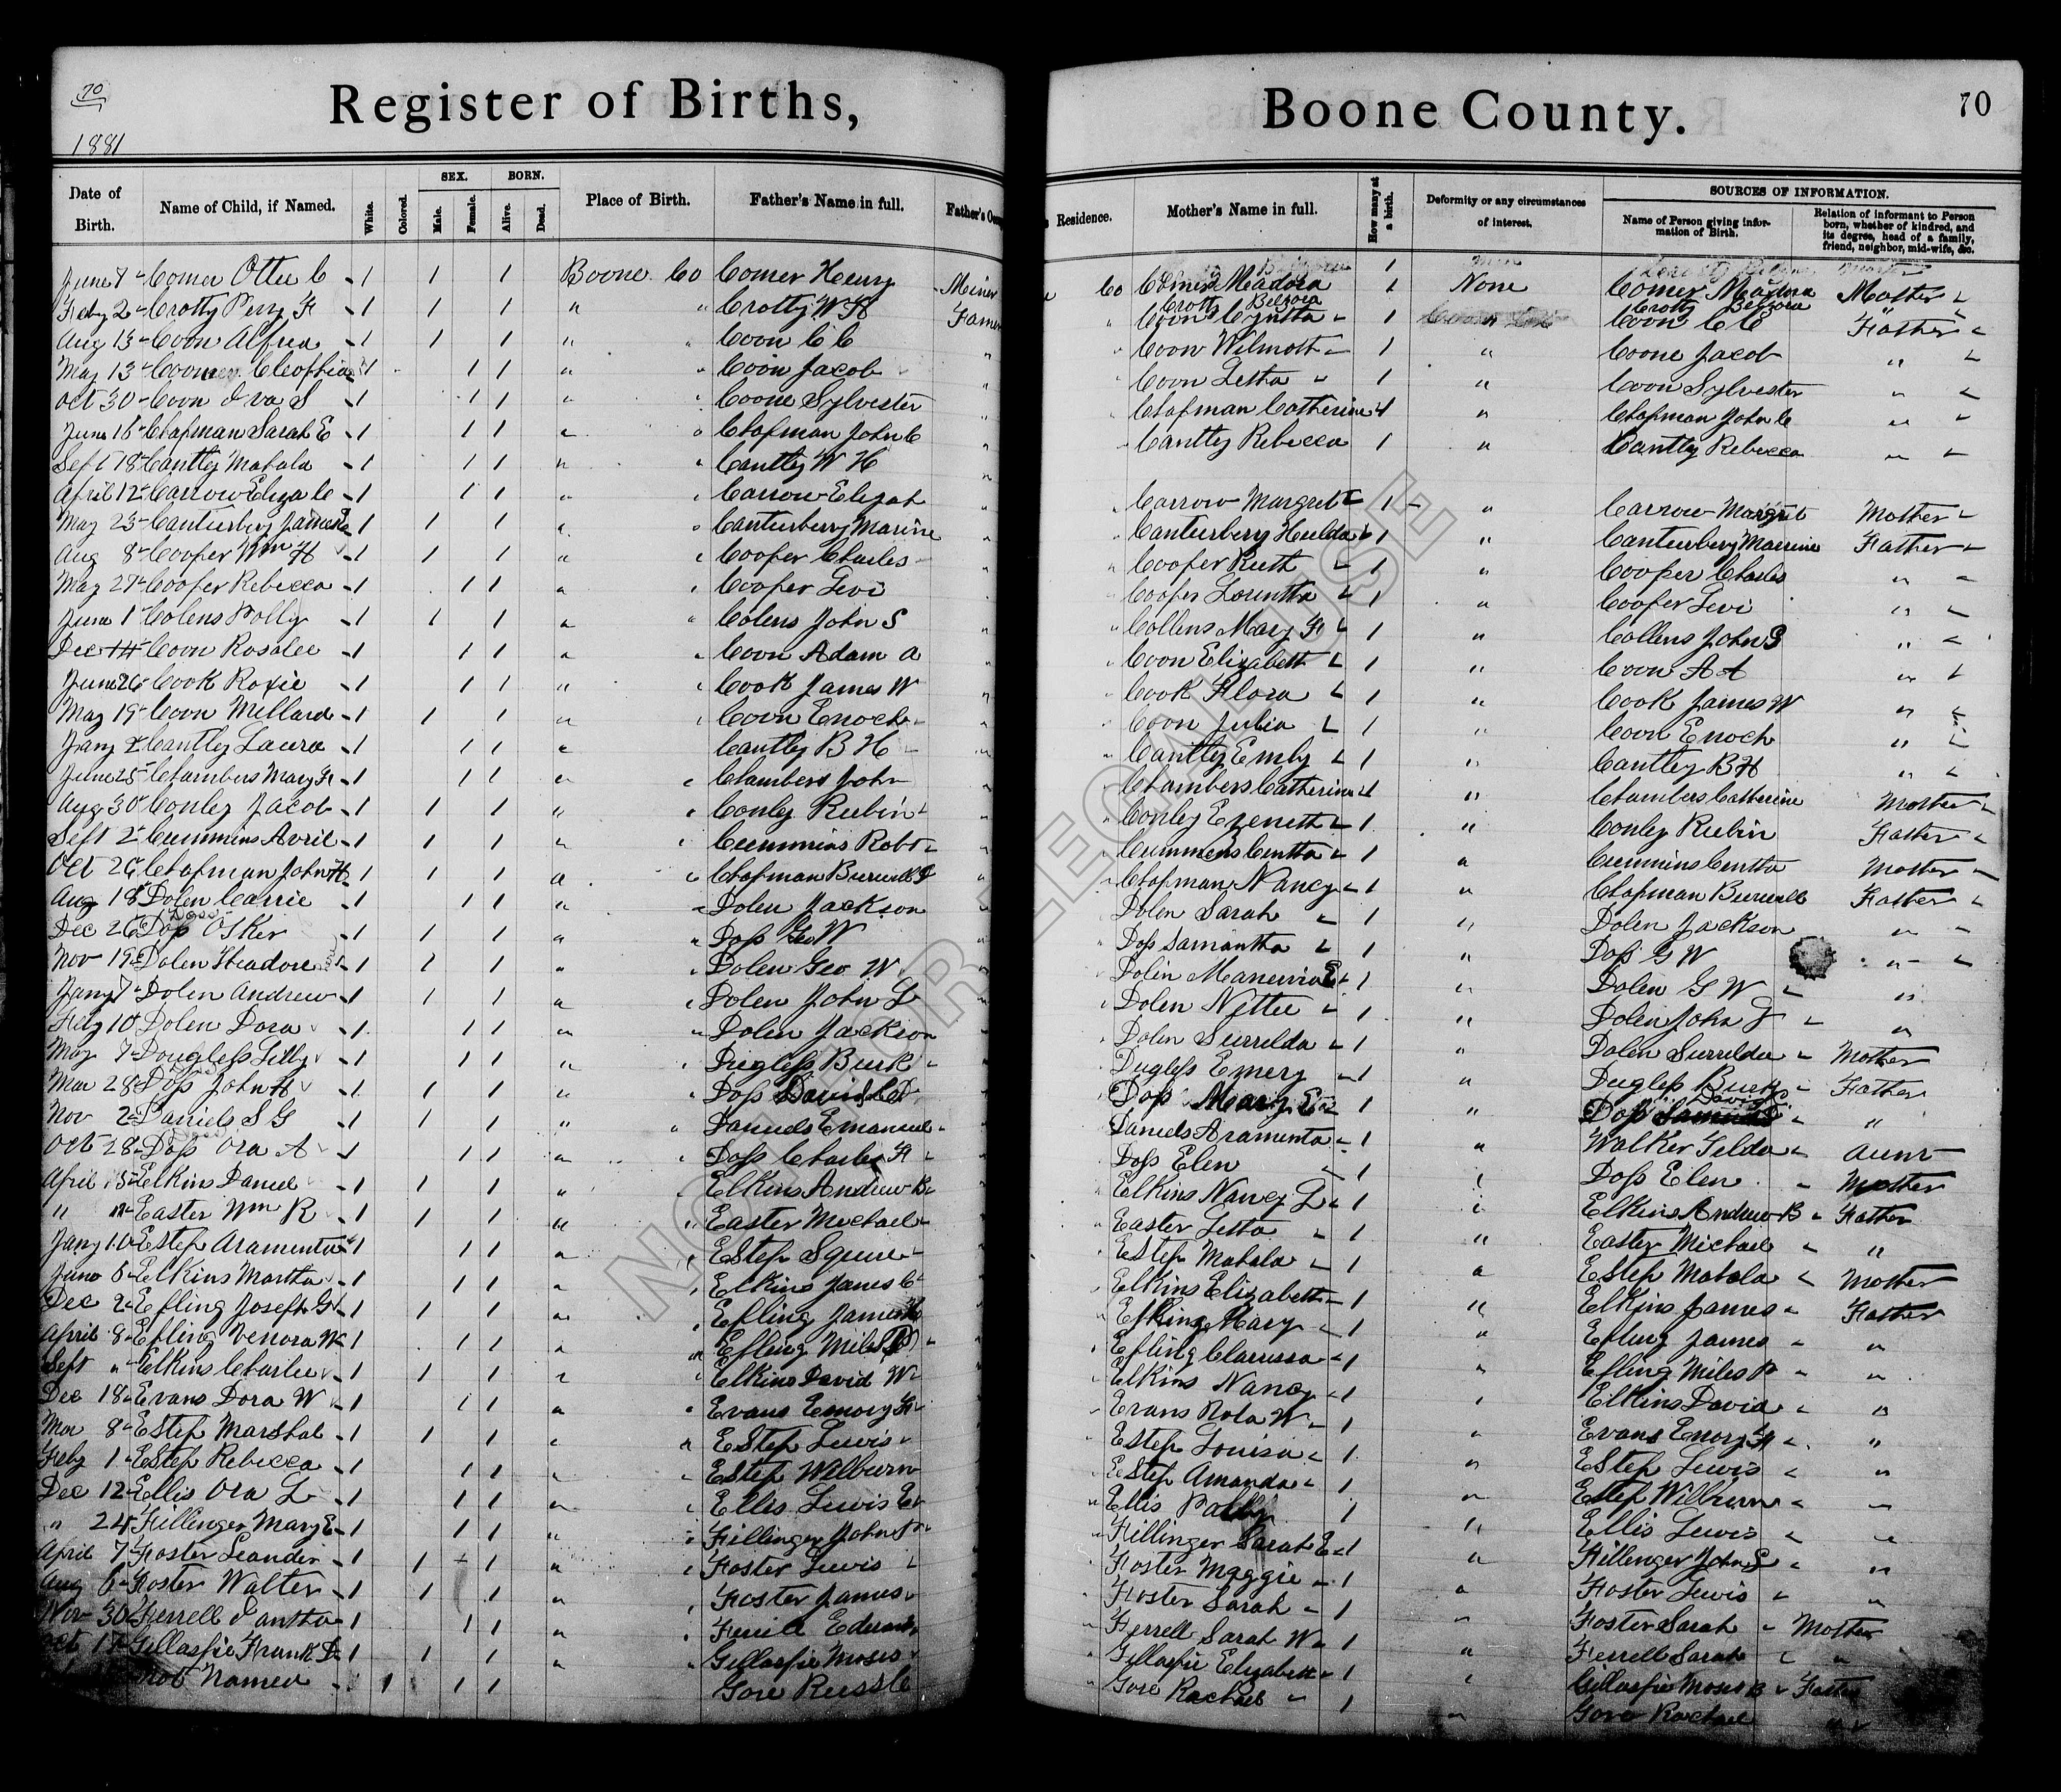 70
1881
Register of Births,
Boone County.
70
Date of Birth.
Name of Child, if Named.
White.
Colored.
SEX.
Male.
Female.
BORN.
Alive.
Dead.
Place of Birth.
Father's Name in full.
Father's Occu
s Residence.
Mother's Name in full.
How many at a birth.
Deformity or any circumstances of interest.
SOURCES OF INFORMATION.
Name of Person giving information of Birth.
Relation of informant to Person born, whether of kindred, and its degree, head of a family, friend, neighbor, mid-wife, &c.
June 7 Comer Ottie C 1 1 1 Boone Co Comer Henry Miner Co Comer Meadora 1 None Comer Meadora Mother
Feby 2 Crotty Perry H 1 1 1 " " Crotty W H Famer Crotty Belzora Crotty Belzora "
Aug 13 Coon Alfred 1 1 1 " " Coon C C " Coon Cyntha 1 Coon C C Father
May 13 Coon Cleophia 1 1 1 " " Coon Jacob " Coon Wilmoth 1 " Coone Jacob "
Oct 30 Coon Iva S 1 1 1 " " Coone Sylvester " Coon Letha 1 " Coon Sylvester "
June 16 Chapman Sarah E 1 1 1 " " Chapman John C " Chapman Catherine 1 " Chapman John C "
Sept 18 Cantley Mahala 1 1 1 " " Cantley W H " Cantley Rebecca 1 " Cantley Rebecca "
April 12 Carrow Eliza C 1 1 1 " " Carrow Elijah " Carrow Margret 1 " Carrow Margret Mother
May 23 Canterbery James 1 1 1 " " Canterberry Marine " Canterbery Hulda 1 " Canterbery Marine Father
Aug 8 Cooper Wm H 1 1 1 " " Cooper Charles " Cooper Ruth 1 " Cooper Charles "
May 27 Cooper Rebecca 1 1 1 " " Cooper Levi " Cooper Lountha 1 " Cooper Levi "
June 1 Colens Polly 1 1 1 " " Colens John S " Collens Mary F 1 " Collens John S "
Dec 14 Coon Rosalee 1 1 1 " " Coon Adam A " Coon Elizabeth 1 " Coon A A "
June 26 Cook Roxie 1 1 1 " " Cook James W " Cook Flora 1 " Cook James W "
May 19 Coon Millard 1 1 1 " " Coon Enoch " Coon Julia 1 " Coon Enoch "
Jany 2 Cantley Laura 1 1 1 " " Cantley B H " Cantley Emly 1 " Cantley B H "
June 25 Chambers Mary F 1 1 1 " " Chambers John " Chambers Catherine 1 " Chambers Catherine Mother
Aug 30 Conley Jacob 1 1 1 " " Conley Rubin " Conley Ezeneth 1 " Conley Rubin Father
Sept 2 Cummins Avril 1 1 1 " " Cummins Robt " Cummens Cintha 1 " Cummins Cintha Mother
Oct 26 Chapman John H 1 1 1 " " Chapman Burwell " Chapman Nancy 1 " Chapman Burwell Father
Aug 18 Dolen Carrie 1 1 1 " " Dolen Jackson " Dolen Sarah 1 " Dolen Jackson "
Dec 26 Doss Osker 1 1 1 " " Doss Geo W " Doss Samantha 1 " Doss G W "
Nov 19 Dolen Theadore 1 1 1 " " Dolen Geo W " Dolin Manervia E 1 " Dolen G W "
Jany 7 Dolen Andrew 1 1 1 " " Dolen John L " Dolen Nettie 1 " Dolen John "
Feby 10 Dolen Dora 1 1 1 " " Dolen Jackson Dolen Surrelda 1 " Dolen Surrelda Mother
May 7 Dougless Lilly 1 1 1 " " Dugless Burk Dugless Emery 1 " Dugless Burk Father
Mar 28 Doss John H 1 1 1 " " Doss David Doss Mary E 1 " Doss David "
Nov 2 Daniels S G 1 1 1 " " Daniels Emanuel Daniels Araminta 1 " Walker Gelda Aunt
Oct 28 Doss Ora A 1 1 1 " " Doss Charles H Doss Elen 1 " Doss Elen Mother
April 15 Elkins Daniel 1 1 1 " " Elkins Andrew B Elkins Nancy L 1 " Elkins Andrew B Father
" Easter Wm R 1 1 1 " " Easter Michael Easter Letta 1 " Easter Michael "
Jany 10 Estep Araminta 1 1 1 " " Estep Squire Estep Mahala 1 " Estep Mahala Mother
June 6 Elkins Martha 1 1 1 " " Elkins James C Elkins Elizabeth 1 " Elkins James Father
Dec 2 Epling Joseph G 1 1 1 " " Epling James Epling Mary 1 " Epling James "
April 8 Epling Venora W 1 1 1 " " Epling Miles P Epling Clarrissa 1 " Epling Miles P "
Sept " Elkins Charlie 1 1 1 " " Elkins David W Elkins Nancy 1 " Elkins David "
Dec 18 Evans Dora W 1 1 1 " " Evans Emory H Evans Nola W 1 " Evans Emory H "
Mar 8 Estep Marshal 1 1 1 " " Estep Lewis Estep Louisa 1 " Estep Lewis "
Feby 1 Estep Rebecca 1 1 1 " " Estep Wilburn Estep Amanda 1 " Estep Wilburn "
Dec 12 Ellis Ora L 1 1 1 " " Ellis Lewis E Ellis Polly 1 " Ellis Lewis "
" 24 Fillinger Mary E 1 1 1 " " Fillinger John S Fillinger Sarah E 1 " Fillinger John S "
April 7 Foster Leander 1 1 1 " " Foster Lewis Foster Maggie 1 " Foster Lewis "
Aug 6 Foster Walter 1 1 1 " " Foster James Foster Sarah 1 " Foster Sarah Mother
Nov 30 Ferrell Iantha 1 1 1 " " Ferrell Edward Ferrell Sarah W 1 " Ferrell Sarah "
Oct 17 Gillaspie Frank D 1 1 1 " " Gillaspie Moses Gillaspie Elizabeth 1 " Gillaspie Moses B Father
Not Named 1 1 1 Gore Russle Gore Rachael 1 " Gore Rachael "
NOT FOR LEGAL USE